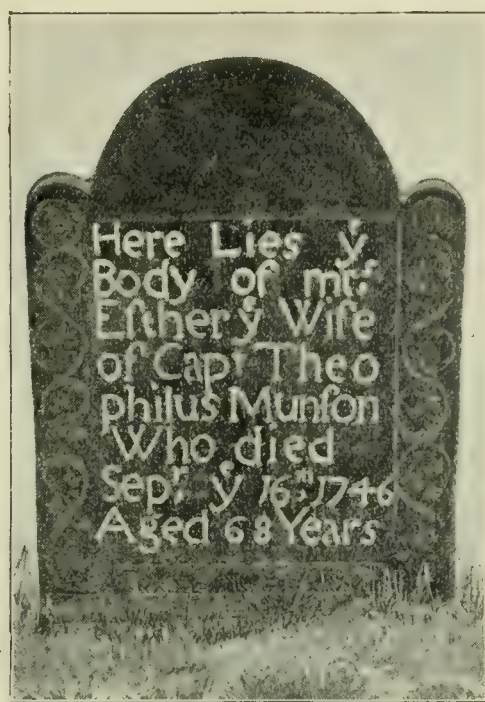 Here Lies yͤ
Body of mrͭˢ
Eſther yͤ Wife
of Capͭ Theo
philus Munſon
Who died
Sepͭʳ yͤ 16ͭʰ 1746
Aged 68 Years